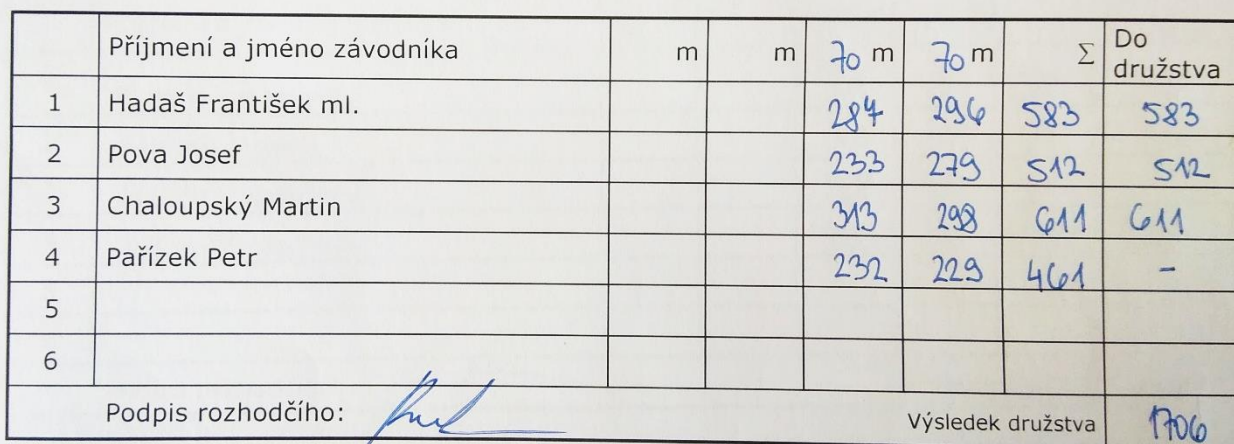 Příjmení a jméno závodníka m m 70 m 70 m Σ Do družstva
1 Hadaš František ml. 287 296 583 583
2 Pova Josef 233 279 512 512
3 Chaloupský Martin 313 298 611 611
4 Pařízek Petr 232 229 461 -
5
6
Podpis rozhodčího: Výsledek družstva 1706